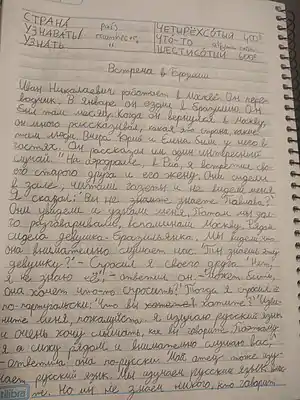 СТРАНА
УЗНАВАТЬ país
УЗНАТЬ "
ЧЕТЫРЁХСОТЫЙ 400º
ЧТО-ТО
ШЕСТИСОТЫЙ 600º
Встреча в
Иван Николаевич работает в Москве. Он пере-
водчик. В январе он ездил в Бразилию. Он
был там месяц. Когда он вернулся в Москву,
он много рассказывал, какая это страна, какие
там люди. Вчера Юрий и Елена были у него в
гостях. Он рассказал им один интересный
случай. "На аэродроме, в Рио, я встретил сво-
его старого друга и его жену. Они сидели
в зале, читали газеты и не видели меня
Я сказал: Вы не знаете
Они увидели и узнали меня. Потом мы дол-
го разговаривали, вспоминали Москву. Рядом
сидела девушка-бразильянка. Мы видели, что
она внимательно слушает нас. "Ты знаешь эту
девушку?" - Спросил я своего друга. "Нет,
я не знаю её", - ответил он. - "Может быть,
она хочет что-то спросить?" Тогда я спросил её
по-португальски: "Что вы хотите?" "Изви-
ните меня, пожалуйста. Я изучаю русский язык
и очень хочу слышать, как вы говорите. Поэтому
я сижу рядом и внимательно слушаю вас",-
ответила она по-русски. Мой отец тоже изу-
чает русский язык. Мы изучаем русский язык
Но мы не знаем никого, кто говорит
tilibra